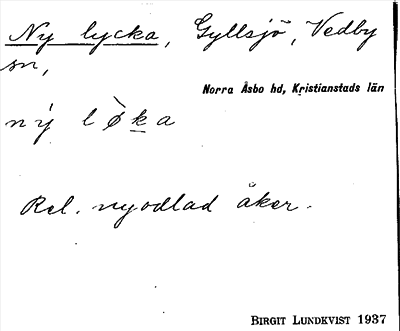 Ny lycka, Gyllsjö, Vedby
sn,
Norra Åsbo hd, Kristianstads län
ný lø̀ka
Rel. nyodlad åker.
BIRGIT LUNDKVIST 1937